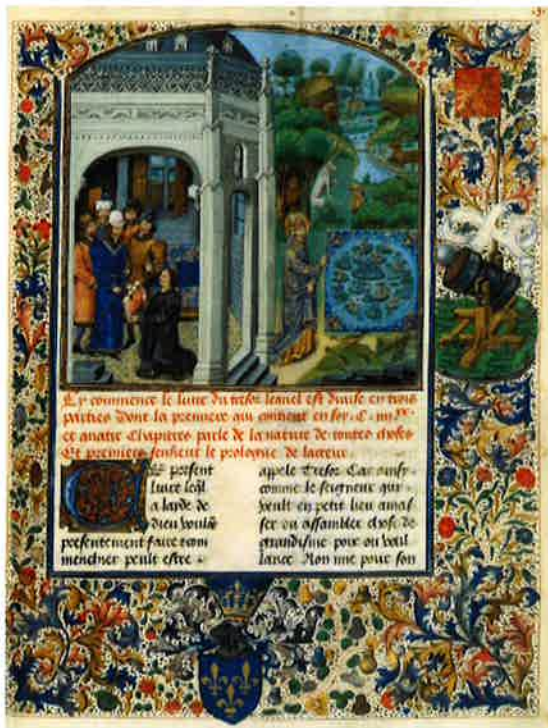 Cy commence le livre du tresor lequel est divise en trois
parties Dont la premiere qui contient en soy . C . iiii xx
et quatre Chapitres parle de la nature de toutes choses
Et premiers sensieut le prologue de lacteur
Cest present
livre leql
a laide de
dieu voulons
presentement faire com
mencher peult estre
appele Tresor Car ainsy
comme le seigneur qui
veult en petit lieu amas
ser ou assambler chose de
grandisme pour
Non mie pour son